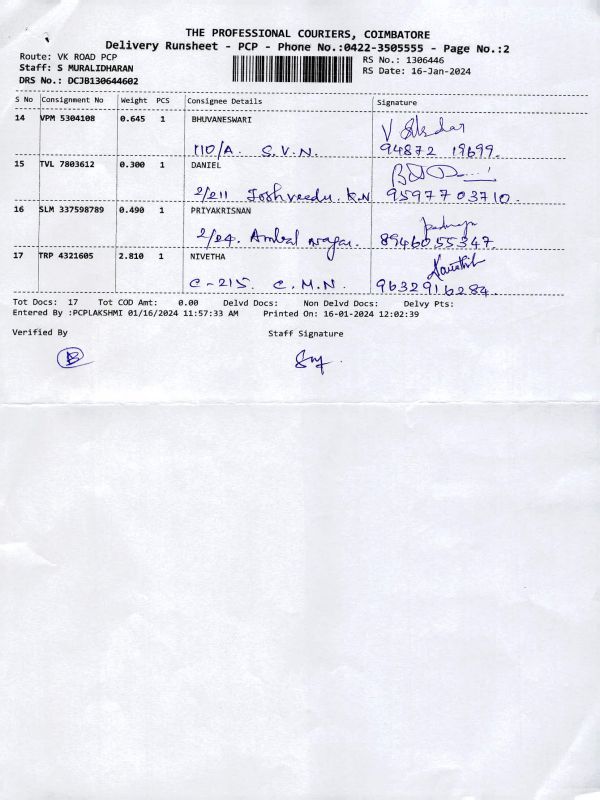 THE PROFESSIONAL COURIERS, COIMBATORE
Delivery Runsheet - PCP - Phone No.:0422-3505555 - Page No.:2
Route: VK ROAD PCP
Staff: S MURALIDHARAN
DRS No.: DCJB130644602
RS No.: 1306446
RS Date: 16-Jan-2024
S No Consignment No Weight PCS Consignee Details Signature
14 VPM 5304108 0.645 1 BHUVANESWARI
110/A. S.V.N. 94872 19699.
15 TVL 7803612 0.300 1 DANIEL
2/211 K.N 95977 03710.
16 SLM 337598789 0.490 1 PRIYAKRISNAN
2/24. Ambal nagar. 8946055347.
17 TRP 4321605 2.810 1 NIVETHA
C-215. C.M.N. 9632916284.
Tot Docs: 17 Tot COD Amt: 0.00 Delvd Docs: Non Delvd Docs: Delvy Pts:
Entered By :PCPLAKSHMI 01/16/2024 11:57:33 AM Printed On: 16-01-2024 12:02:39
Verified By Staff Signature